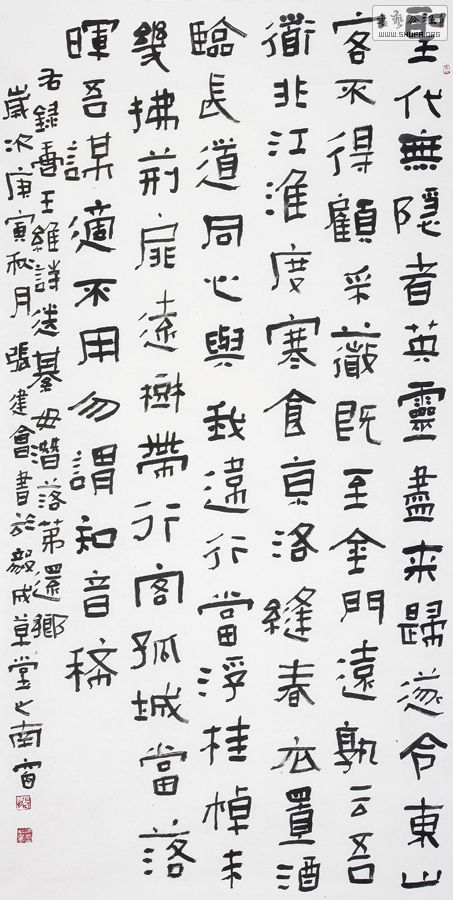 聖代無隱者英靈盡来歸遂令東山
客不得顧采薇既至金門遠孰云吾
道非江淮度寒食京洛縫春衣置酒
臨長道同心與我違行當浮桂棹未
幾拂荆扉遠樹帶行客孤城當落
暉吾謀適不用勿謂知音稀
右録唐王維詩送綦毋潛落第還鄉
歲次庚寅秋月張建會書於毅成草堂之南窗
WWW.SHUFA.ORG